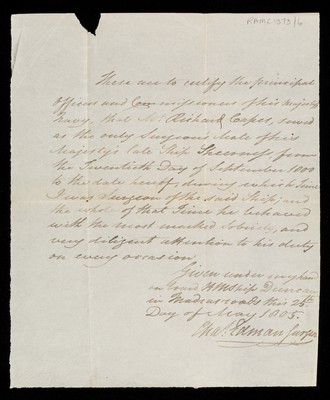 RAMC 1373/6
These are to certify the principal
Officers and Commissioners of his Majesty's
Navy, that Mr. Richard Capes, served
as the only Surgeons Mate of his
Majesty's late Ship Sheerness from
the Twentieth Day of September 1800
to the date hereof, during which time
I was Surgeon of the said Ship; and
the whole of that time he behaved
with the most marked Sobriety, and
very diligent attention to his duty
on every occasion.
Given under my hand
on board HM Ship Duncan
in Madras roads this 25th
Day of May 1805.
Chas. Edman Surgeon